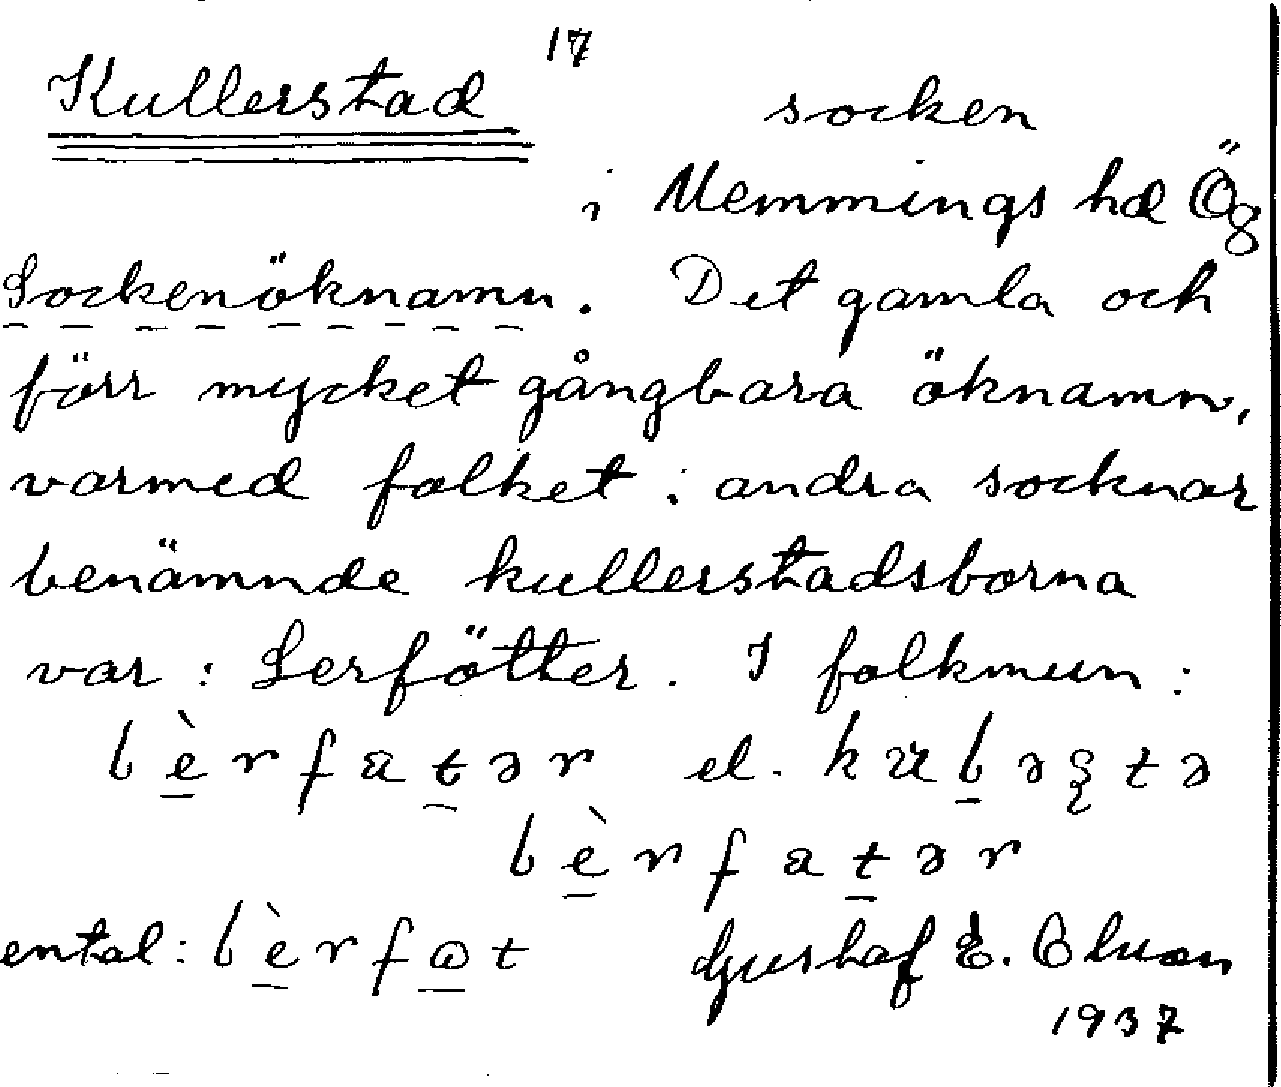 17
Kullerstad
socken
i Memmings hd Ög
Sockenöknamn. Det gamla och
förr mycket gångbara öknamn,
varmed folket i andra socknar
benämnde kullerstadsborna
var: Lerfötter. I folkmun:
lèrfatər el. kuləʂtə
lèrfatər
ental: lèrfɷt Gustaf E.
1937